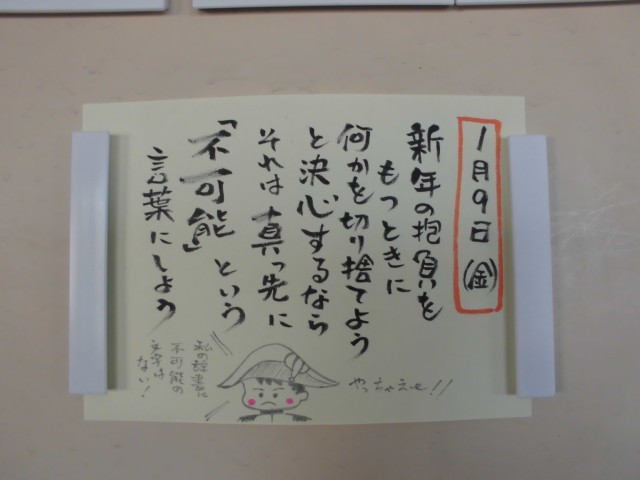 1月9日(金)
新年の抱負を
もつときに
何かを切り捨てよう
と決心するなら
それは真っ先に
「不可能」という
言葉にしよう
やっちゃえe!!
私の辞書に
不可能の
文字は
ない!